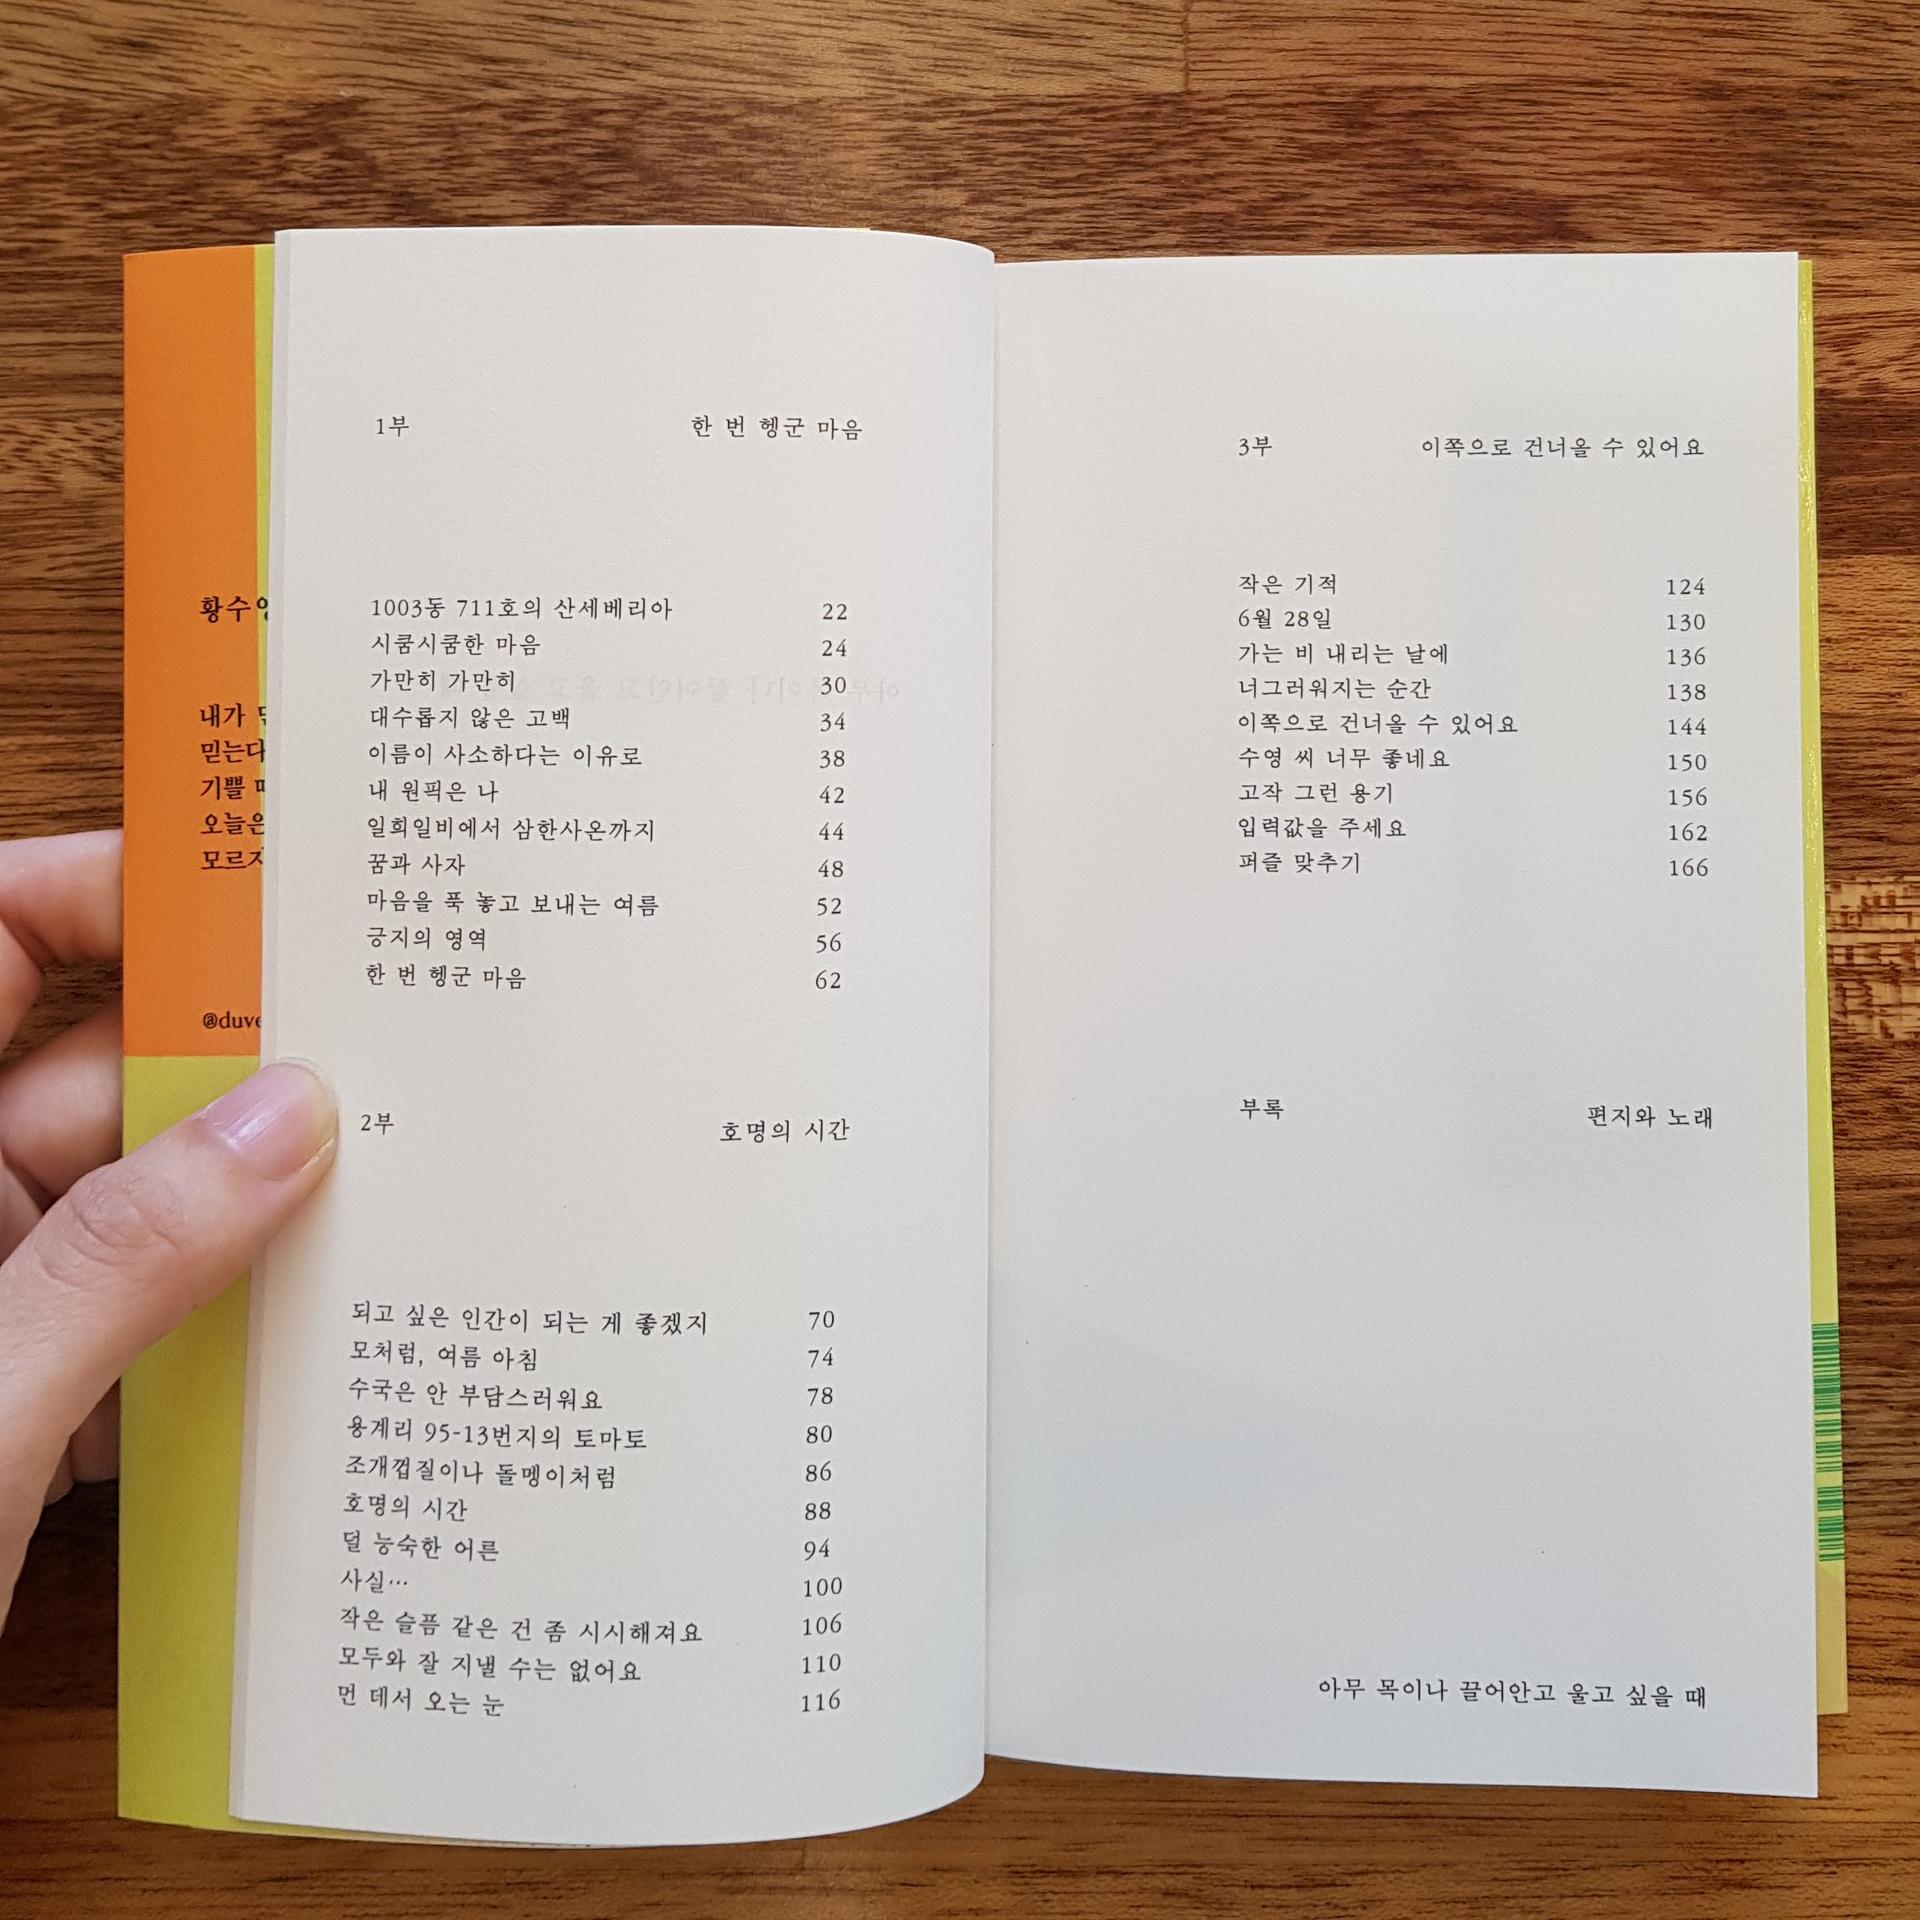 황수
내가
믿는다
기쁠
오늘은
모르지
@duve
1부 한 번 헹군 마음
1003동 711호의 산세베리아 22
시쿰시쿰한 마음 24
가만히 가만히 30
대수롭지 않은 고백 34
이름이 사소하다는 이유로 38
내 원픽은 나 42
일희일비에서 삼한사온까지 44
꿈과 사자 48
마음을 푹 놓고 보내는 여름 52
긍지의 영역 56
한 번 헹군 마음 62
2부 호명의 시간
되고 싶은 인간이 되는 게 좋겠지 70
모처럼, 여름 아침 74
수국은 안 부담스러워요 78
용계리 95-13번지의 토마토 80
조개껍질이나 돌멩이처럼 86
호명의 시간 88
덜 능숙한 어른 94
사실… 100
작은 슬픔 같은 건 좀 시시해져요 106
모두와 잘 지낼 수는 없어요 110
먼 데서 오는 눈 116
3부 이쪽으로 건너올 수 있어요
작은 기적 124
6월 28일 130
가는 비 내리는 날에 136
너그러워지는 순간 138
이쪽으로 건너올 수 있어요 144
수영 씨 너무 좋네요 150
고작 그런 용기 156
입력값을 주세요 162
퍼즐 맞추기 166
부록 편지와 노래
아무 목이나 끌어안고 울고 싶을 때